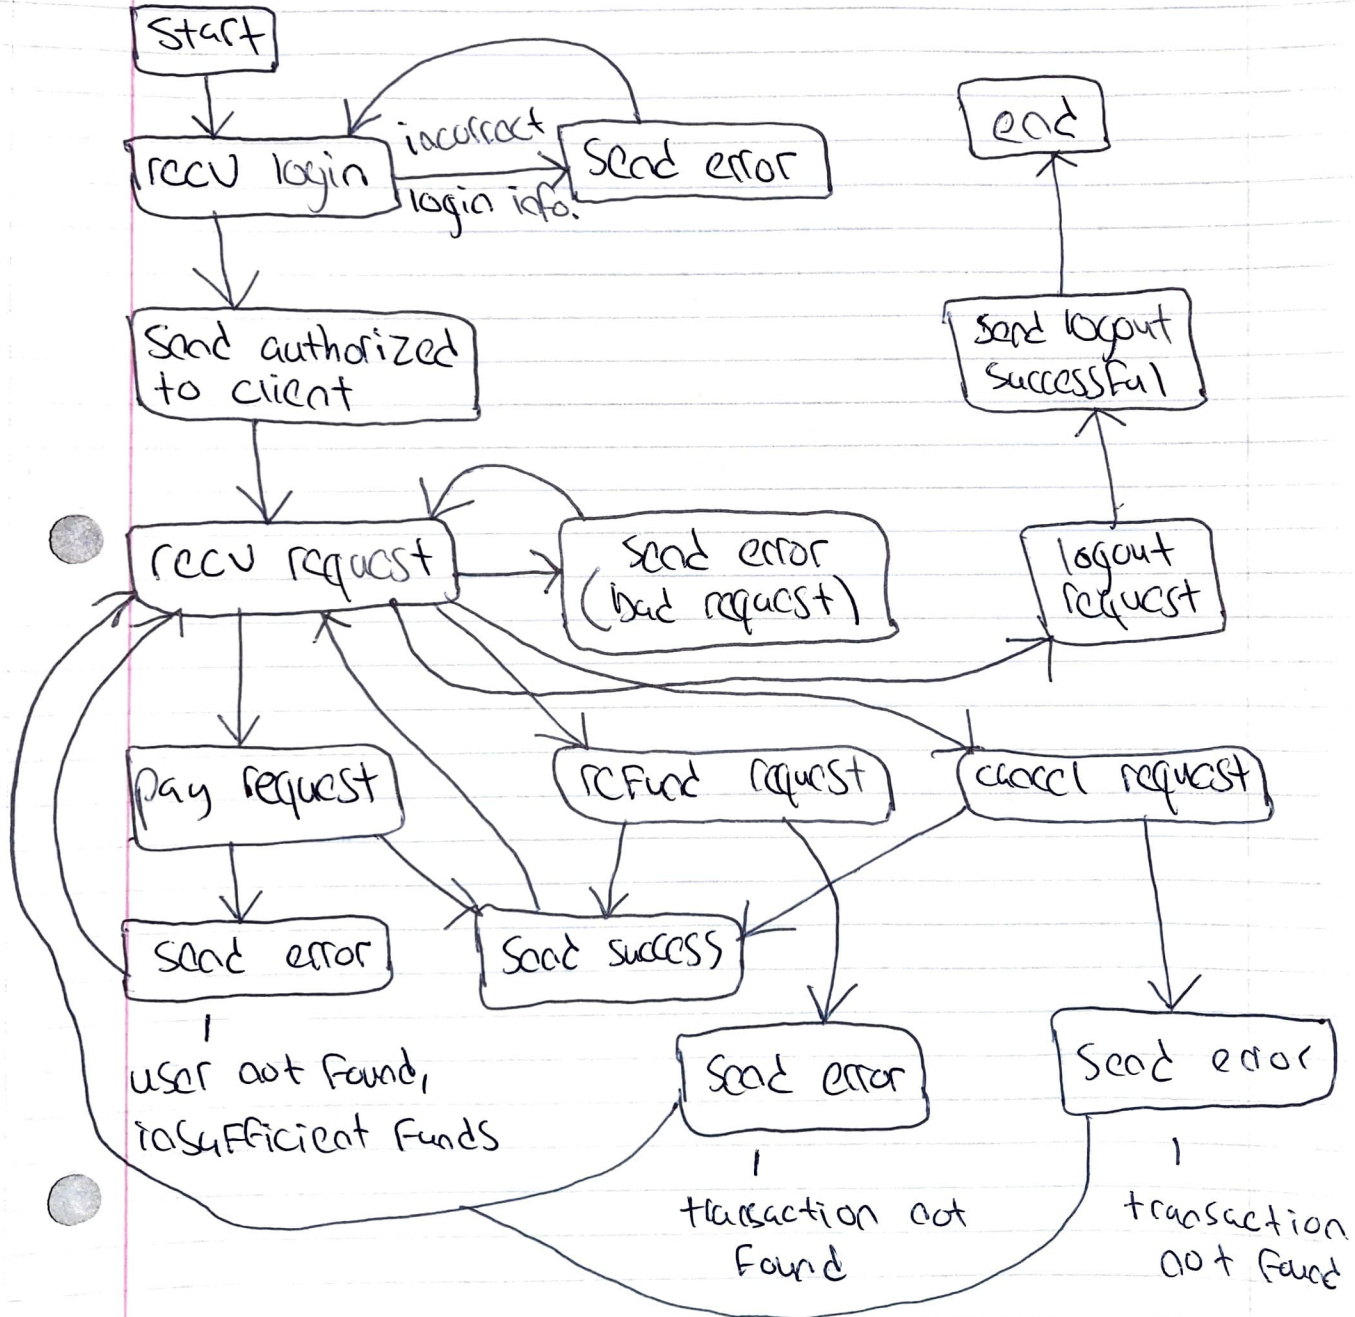 Start
end
recv login
incorrect
login info.
Send error
Send authorized
to client
send logout
successful
recv request
Send error
(bad request)
logout
request
pay request
refund request
cancel request
Send error
Send success
user not found,
insufficient funds
Send error
Send error
transaction not
found
transaction
not found